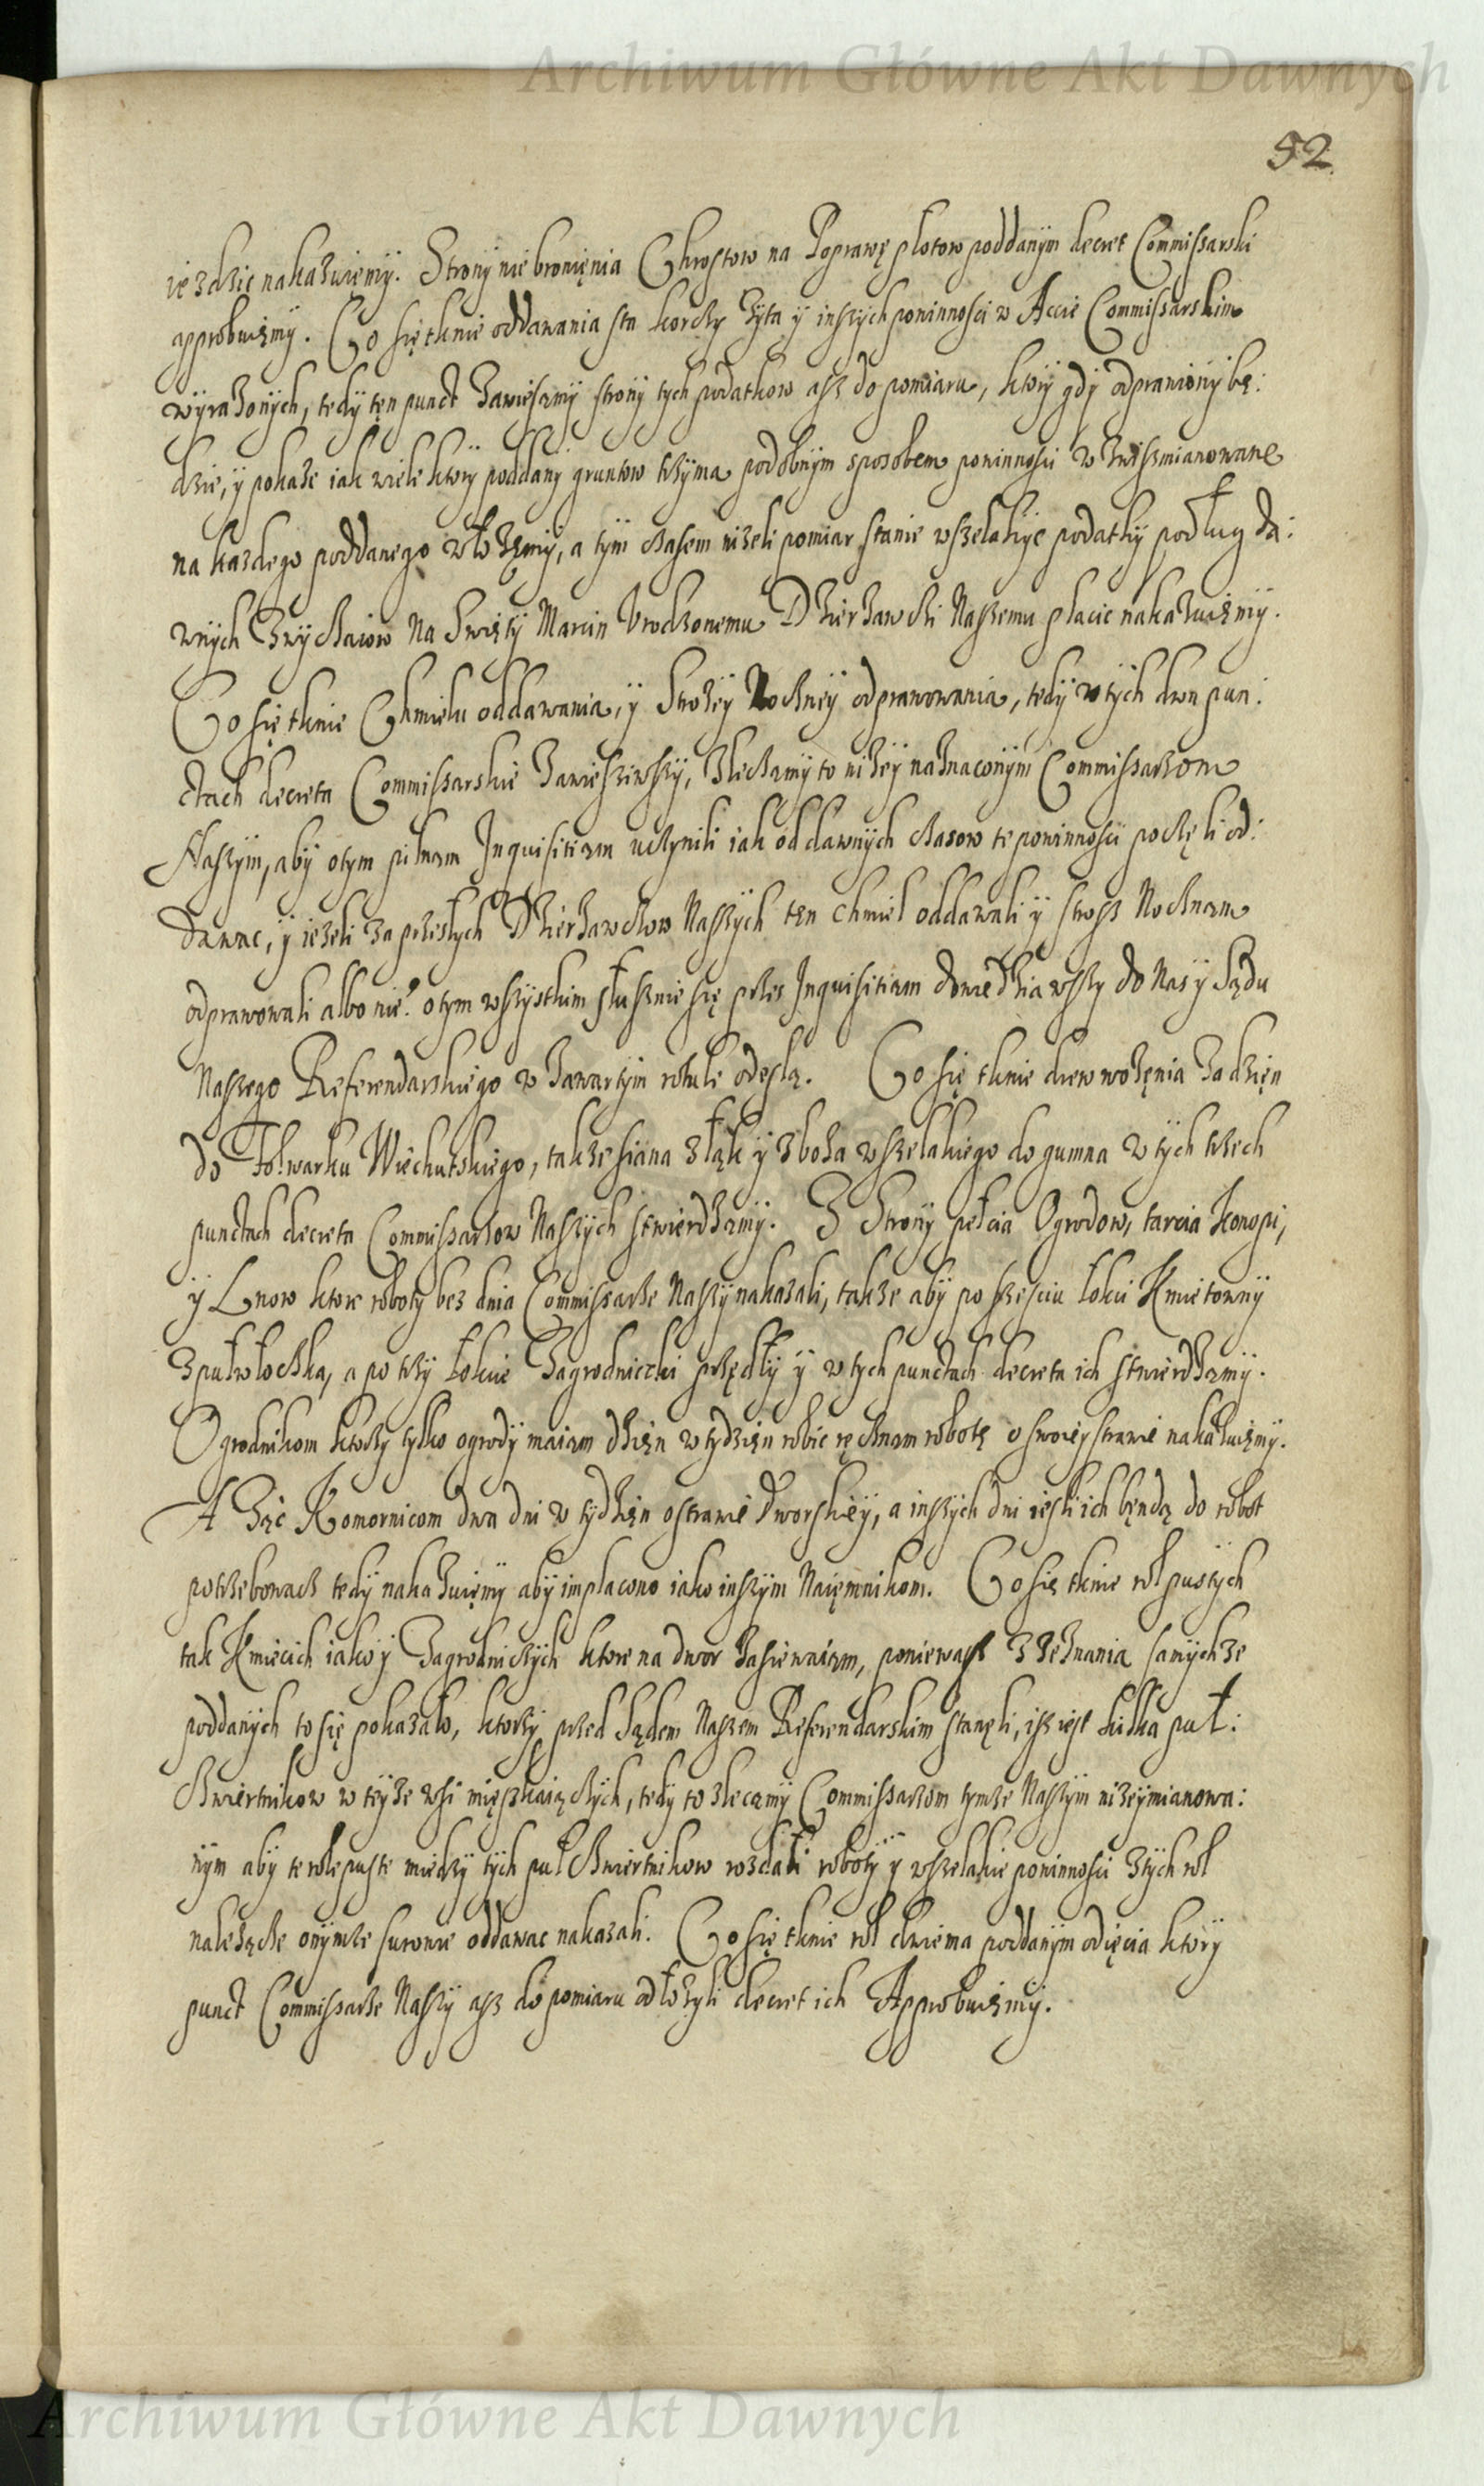 Archiwum Główne Akt Dawnych
52
iezdzic nakazuięmÿ. Stronÿ nie bronięnia Chrostow na Poprawę płotow poddanÿm decret Commissarski
approbuięmÿ. Co się tknie oddawania sta korczÿ Żÿta ÿ inszÿch powinnosci w Accie Commissarskim
wÿrażonÿch, tedÿ tęn punct Zawieszamÿ stronÿ tÿch podatkow asz do pomiaru, ktorÿ gdÿ odprawionÿ bę:
dzie, ÿ pokaże iak wiele ktorÿ poddanÿ gruntow trzÿma podobnÿm sposobem powinnosci wzwiszmianowane
na kazdego poddanego włożęmÿ, a tÿm czasem nizeli pomiar stanie wszelakiye podatkÿ podług da:
wnÿch Zwÿczaiow Na Swiętÿ Marcin Urodzonemu Dzierżawcżi Naszemu płacic nakazuięmÿ.
Co się tknie Chmielu oddawania, ÿ Strożeÿ Nocneÿ odprawowania, tedÿ w tÿch dwu pun:
ctach decreta Commissarskie Zawiesziwszÿ, Zlecamÿ to niżeÿ naznaconÿm Commissarzom
Naszÿm, abÿ otÿm pilnam Inquisitiam uczÿnili iak od dawnÿch czasow te powinnoscÿ poczęli od:
dawac, ÿ iezeli za przeszłÿch Dzierżawcow Naszÿch ten chmiel oddawali ÿ strosz Nocznam
odprawowali albo nie? otÿm wszÿstkim słusznie się przez Inquisitiam dowiedziawszÿ do Nas ÿ Sądu
Naszego Referendarskiego w Zawartÿm rotule odeslą. Co się tknie drew wożęnia Za dzięn
do Folwarku Wiechutskiego, takze siana z łąk ÿ zboża wszelakiego do gumna w tÿch trzech
punctach decreta Commissarzow Naszÿch stwierdzamÿ. Z Stronÿ pełcia Ogrodow, tarcia Konopi,
ÿ Lnow ktore robotÿ bez dnia Commissarze Naszÿ nakazali, takze abÿ po szesciu łokci Kmietownÿ
z pułwłoczka, a po trzÿ łokcie Zagrodniczki przędłÿ ÿ w tÿch punctach decreta ich stwierdzamÿ.
Ogrodnikom ktorzÿ tylko ogrodÿ maiam dzięn w tydzięn robic ręcznam robotę o swoieÿ strawie nakazuięmÿ.
A Żąc Komornicom dwa dni w tÿdzięn o strawie Dworskieÿ, a inszÿch dni iesli ich będą do robot
potrzebowacz tedÿ nakazuięmÿ abÿ im płacono iako inszÿm Naięmnikom. Co się tknie rol pustÿch
tak Kmiecich iako ÿ Zagrodniczÿch ktore na dwor Zasiewaiam, poniewasz z Zeznania samÿchze
poddanÿch to się pokazało, ktorzÿ przed Sądem Naszem Referendarskim stanęli, isz iest kilka puł:
Czwiertnikow w teÿze wsi mięszkaiączÿch, tedÿ to zlecamÿ Commissarzom tymze Naszÿm niżeÿmianowa:
nÿm abÿ te role puste miedzÿ tÿch puł Czwiertnikow rozdali robotÿ ÿ wszelakie powinnoscÿ z tÿch rol
należącze onÿmze surowie oddawac nakazali. Co się tknie rol dwiema poddanÿm odięcia ktorÿ
punct Commissarze Naszÿ asz do pomiaru odłożÿli decret ich Approbuięmÿ.
Archiwum Główne Akt Dawnych